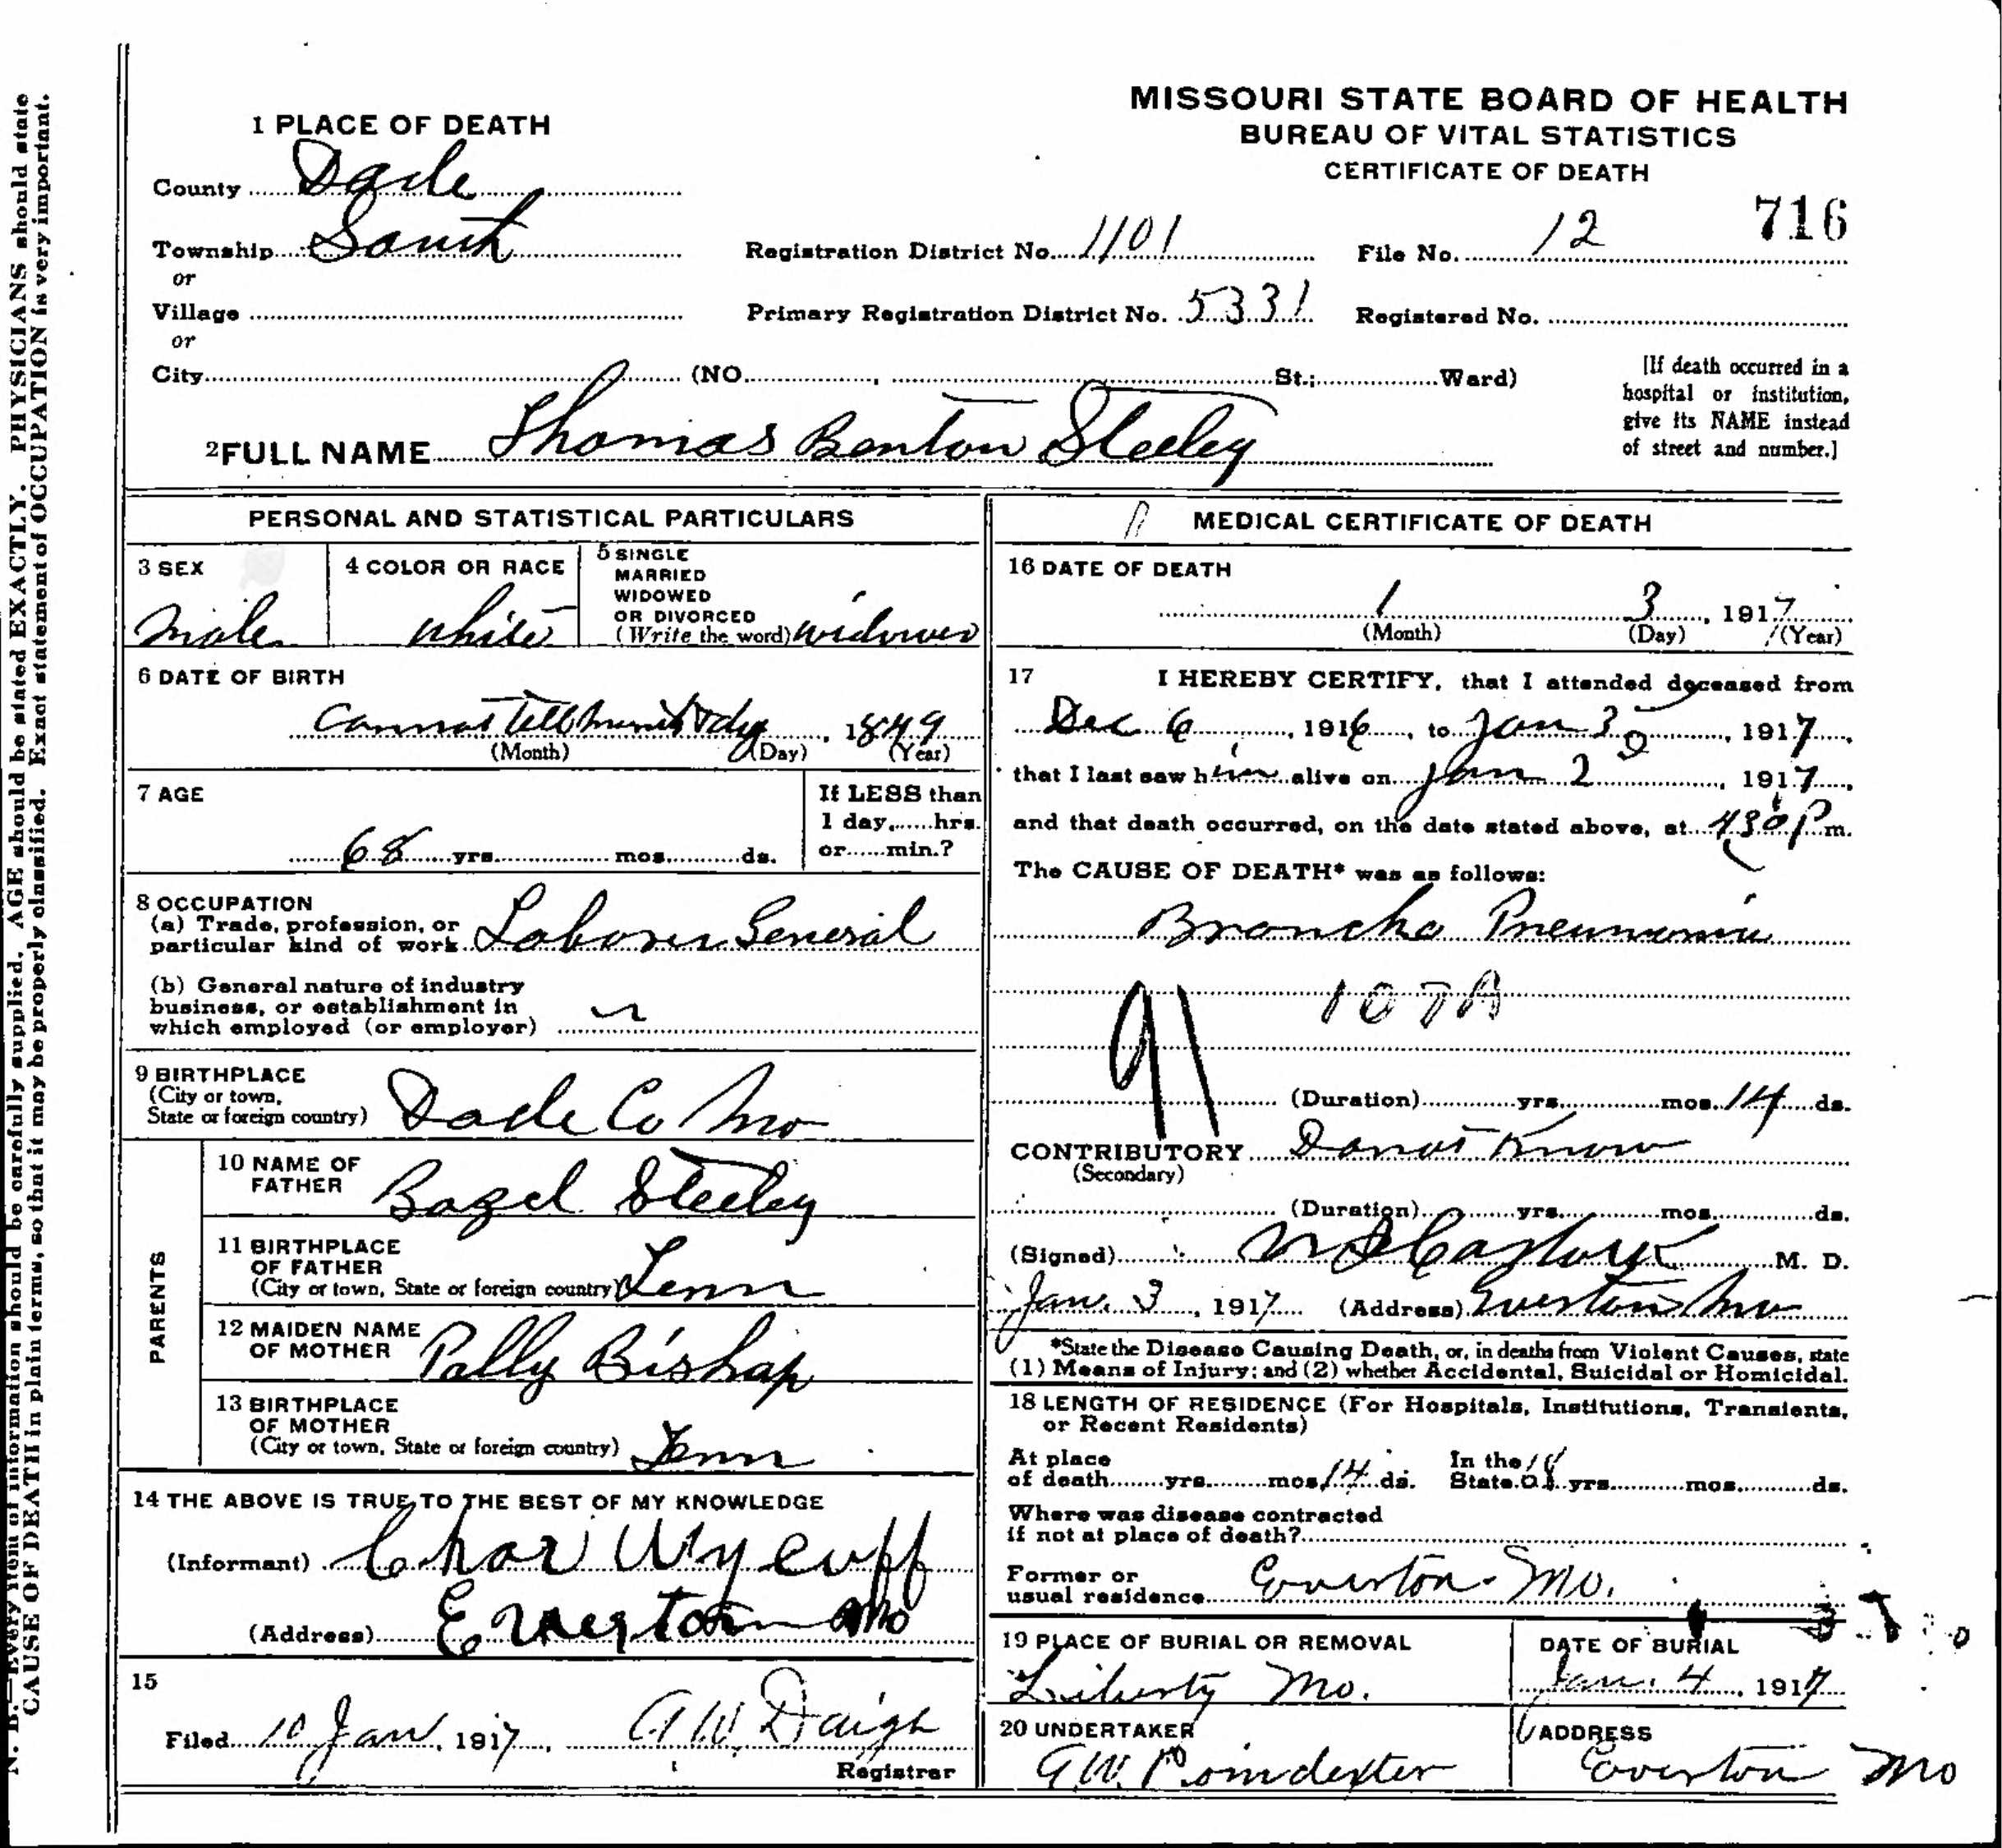 MISSOURI STATE BOARD OF HEALTH
BUREAU OF VITAL STATISTICS
CERTIFICATE OF DEATH
716
1 PLACE OF DEATH
County Dade
Township South
or
Village
or
City (NO. , St.; Ward)
Registration District No. 1101
File No. 12
Primary Registration District No. 5331
Registered No.
[If death occurred in a
hospital or institution,
give its NAME instead
of street and number.]
2 FULL NAME Thomas Benton Steeley
PERSONAL AND STATISTICAL PARTICULARS
3 SEX
Male
4 COLOR OR RACE
White
5 SINGLE
MARRIED
WIDOWED
OR DIVORCED
(Write the word) Widower
6 DATE OF BIRTH
Cannot tell , 1849
(Month) (Day) (Year)
7 AGE
68 yrs. mos. ds.
If LESS than
1 day, hrs.
or min.?
8 OCCUPATION
(a) Trade, profession, or
particular kind of work Laborer General
(b) General nature of industry
business, or establishment in
which employed (or employer)
9 BIRTHPLACE
(City or town,
State or foreign country) Dade Co Mo
PARENTS
10 NAME OF
FATHER Bazel Steeley
11 BIRTHPLACE
OF FATHER
(City or town, State or foreign country) Tenn
12 MAIDEN NAME
OF MOTHER Polly Bishop
13 BIRTHPLACE
OF MOTHER
(City or town, State or foreign country) Tenn
14 THE ABOVE IS TRUE TO THE BEST OF MY KNOWLEDGE
(Informant) Chas Wycuff
(Address) Everton Mo
15
Filed 10 Jan, 1917, A W. Daigh
Registrar
MEDICAL CERTIFICATE OF DEATH
16 DATE OF DEATH
1 3, 1917
(Month) (Day) (Year)
17 I HEREBY CERTIFY, that I attended deceased from
Dec 6, 1916, to Jan 3, 1917,
that I last saw him alive on Jan 2, 1917,
and that death occurred, on the date stated above, at 430 P m.
The CAUSE OF DEATH* was as follows:
Broncho Pneumonia
107A
91
(Duration) yrs. mos. 14 ds.
CONTRIBUTORY Donot Know
(Secondary)
(Duration) yrs. mos. ds.
(Signed) M. D.
Jan. 3, 1917 (Address) Everton Mo
*State the Disease Causing Death, or, in deaths from Violent Causes, state
(1) Means of Injury; and (2) whether Accidental, Suicidal or Homicidal.
18 LENGTH OF RESIDENCE (For Hospitals, Institutions, Transients,
or Recent Residents)
At place
of death yrs. mos. 14 ds. In the
State yrs. mos. ds.
Where was disease contracted
if not at place of death?
Former or
usual residence Everton Mo.
19 PLACE OF BURIAL OR REMOVAL
Liberty Mo.
DATE OF BURIAL
Jan. 4, 1917
20 UNDERTAKER
G.W. Poindexter
ADDRESS
Everton Mo
N. B.—Every item of information should be carefully supplied. AGE should be stated EXACTLY. PHYSICIANS should state
CAUSE OF DEATH in plain terms, so that it may be properly classified. Exact statement of OCCUPATION is very important.